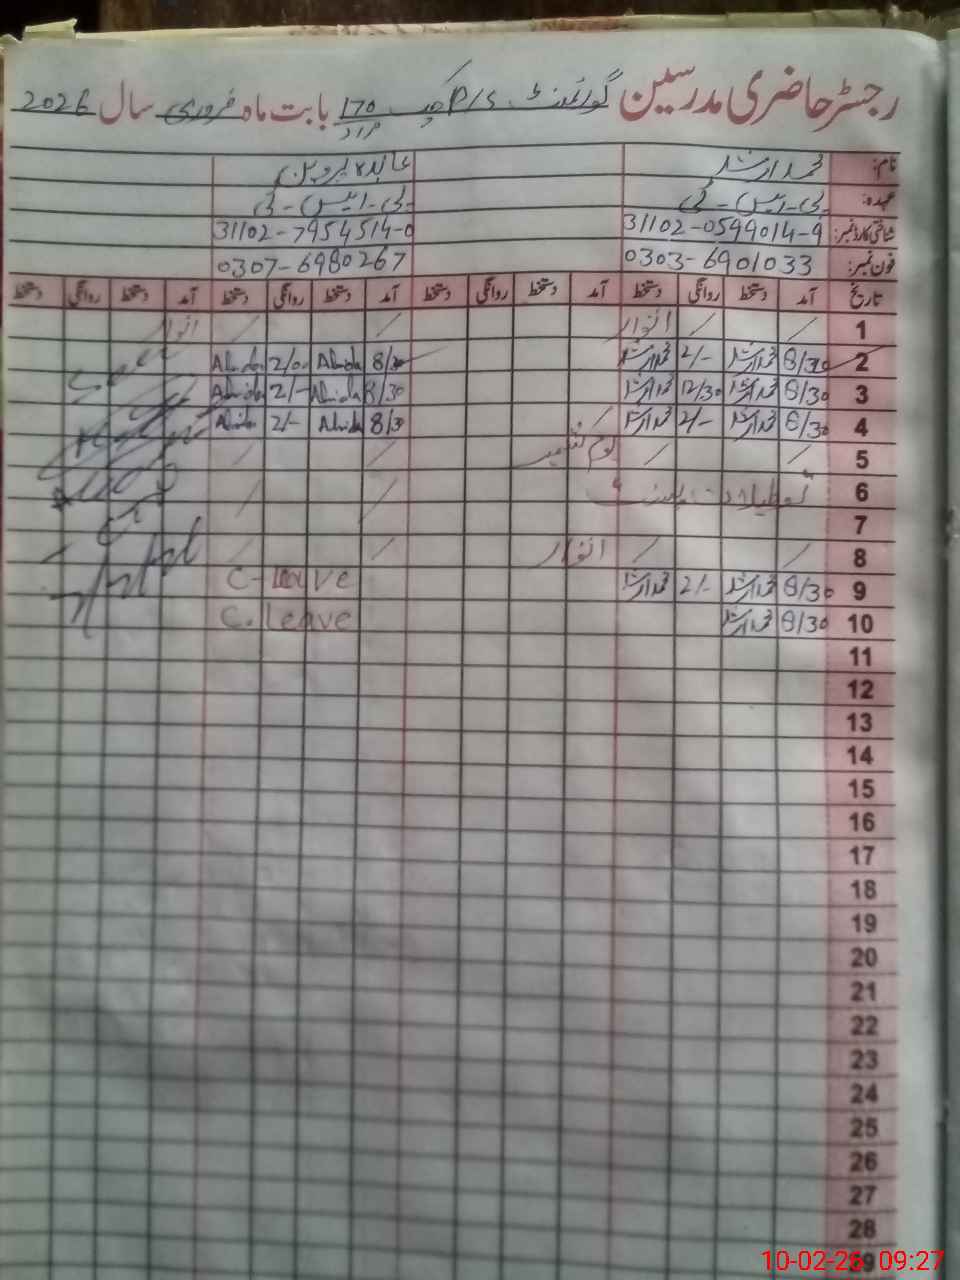 رجسٹر حاضری مدرسین گورنمنٹ P/S چک 170 مراد بابت ماہ فروری سال 2026
نام: محمد ارشد عابدہ پروین
عہدہ: پی-ایس-ٹی پی-ایس-ٹی
شناختی کارڈ نمبر: 31102-0599014-9 31102-7954514-0
فون نمبر: 0303-6901033 0307-6980267
تاریخ آمد دستخط روانگی دستخط آمد دستخط روانگی دستخط آمد دستخط روانگی دستخط آمد دستخط روانگی دستخط
1 / / اتوار / / اتوار
2 8/30 محمد ارشد 2/- محمد ارشد 8/30 Abida 2/0 Abida
3 8/30 محمد ارشد 12/30 محمد ارشد 8/30 Abida 2/- Abida
4 8/30 محمد ارشد 2/- محمد ارشد 8/30 Abida 2/- Abida
5 / / یوم کشمیر / /
6 تعطیلات
7
8 / / اتوار / /
9 8/30 محمد ارشد 2/- محمد ارشد C-leave
10 8/30 محمد ارشد C.leave
11
12
13
14
15
16
17
18
19
20
21
22
23
24
25
26
27
28
29
10-02-26 09:27